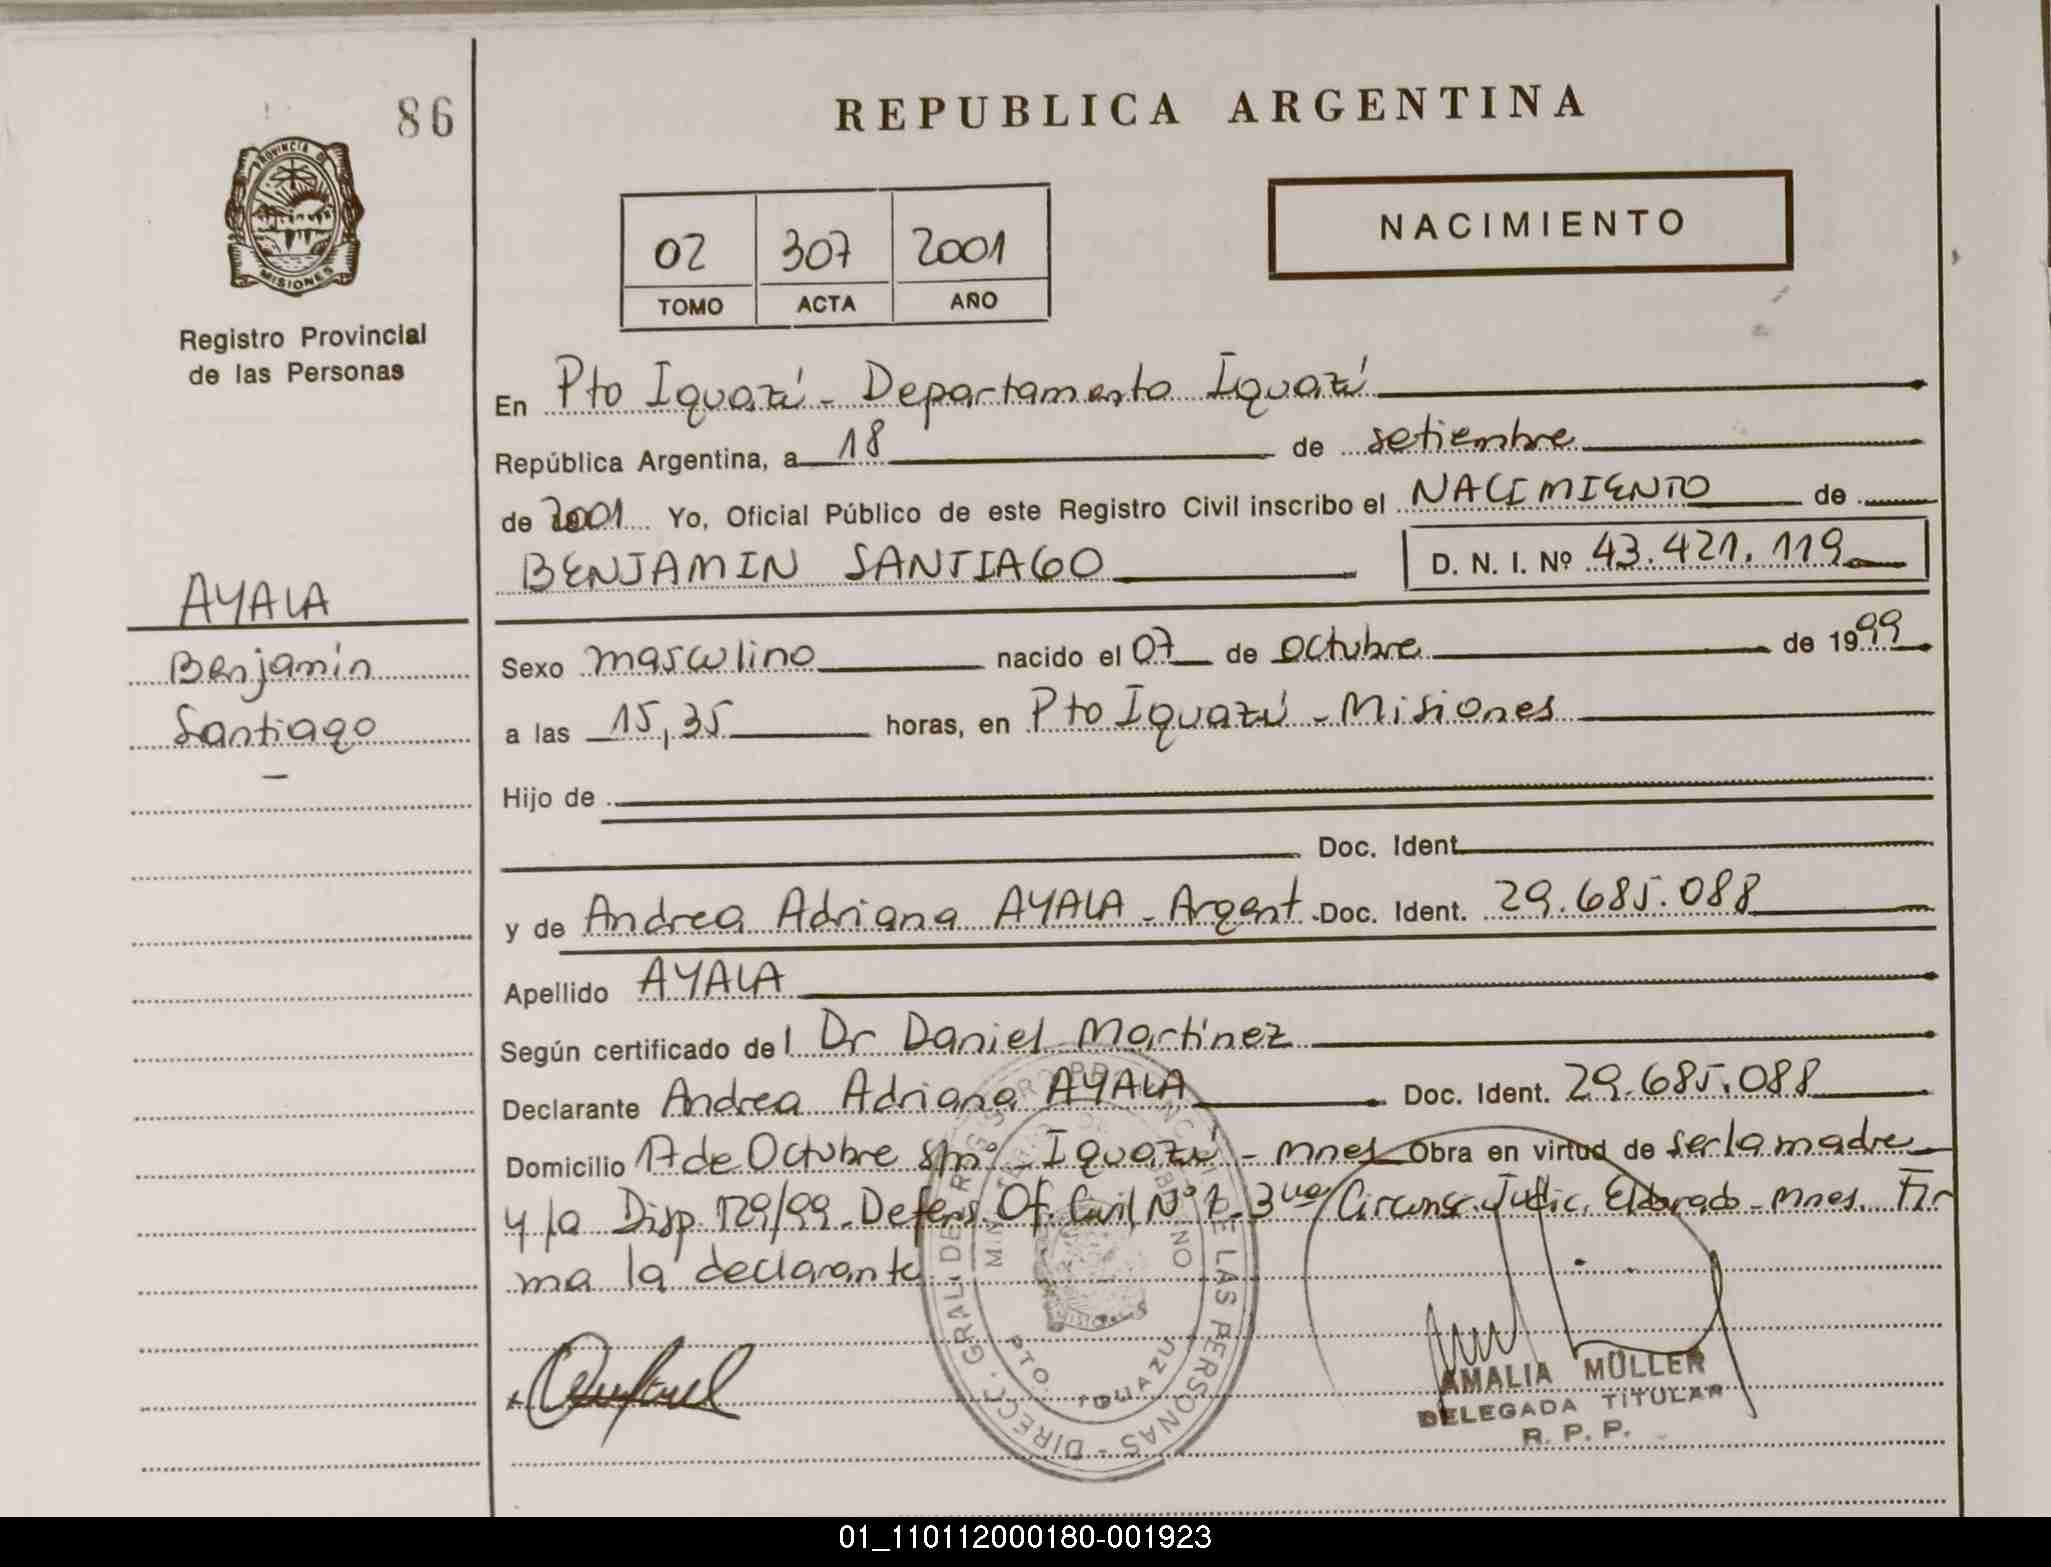 86
REPUBLICA ARGENTINA
PROVINCIA DE
MISIONES
NACIMIENTO
02 307 2001
TOMO ACTA AÑO
Registro Provincial
de las Personas
En Pto Iguazú - Departamento Iguazú
República Argentina, a 18 de setiembre
de 2001 Yo, Oficial Público de este Registro Civil inscribo el NACIMIENTO de
BENJAMIN SANTIAGO D. N. I. Nº 43.421.119
AYALA
Benjamín
Santiago
Sexo masculino nacido el 07 de octubre de 1999
a las 15,35 horas, en Pto Iguazú - Misiones
Hijo de
Doc. Ident.
y de Andrea Adriana AYALA - Argent. Doc. Ident. 29.685.088
Apellido AYALA
Según certificado del Dr Daniel Martínez
Declarante Andrea Adriana AYALA Doc. Ident. 29.685.088
Domicilio 17 de Octubre s/nº - Iguazú - mnes Obra en virtud de ser la madre
y la Disp. 129/99 - Defens. Of. Civil Nº 1 - 3ra Circunsc. Judic. Eldorado - mnes. Fir
ma la declarante
DIRECC. GRAL. DE REGISTRO PROVINCIAL DE LAS PERSONAS
PTO. IGUAZU
AMALIA MÜLLER
DELEGADA TITULAR
R. P. P.
01_110112000180-001923